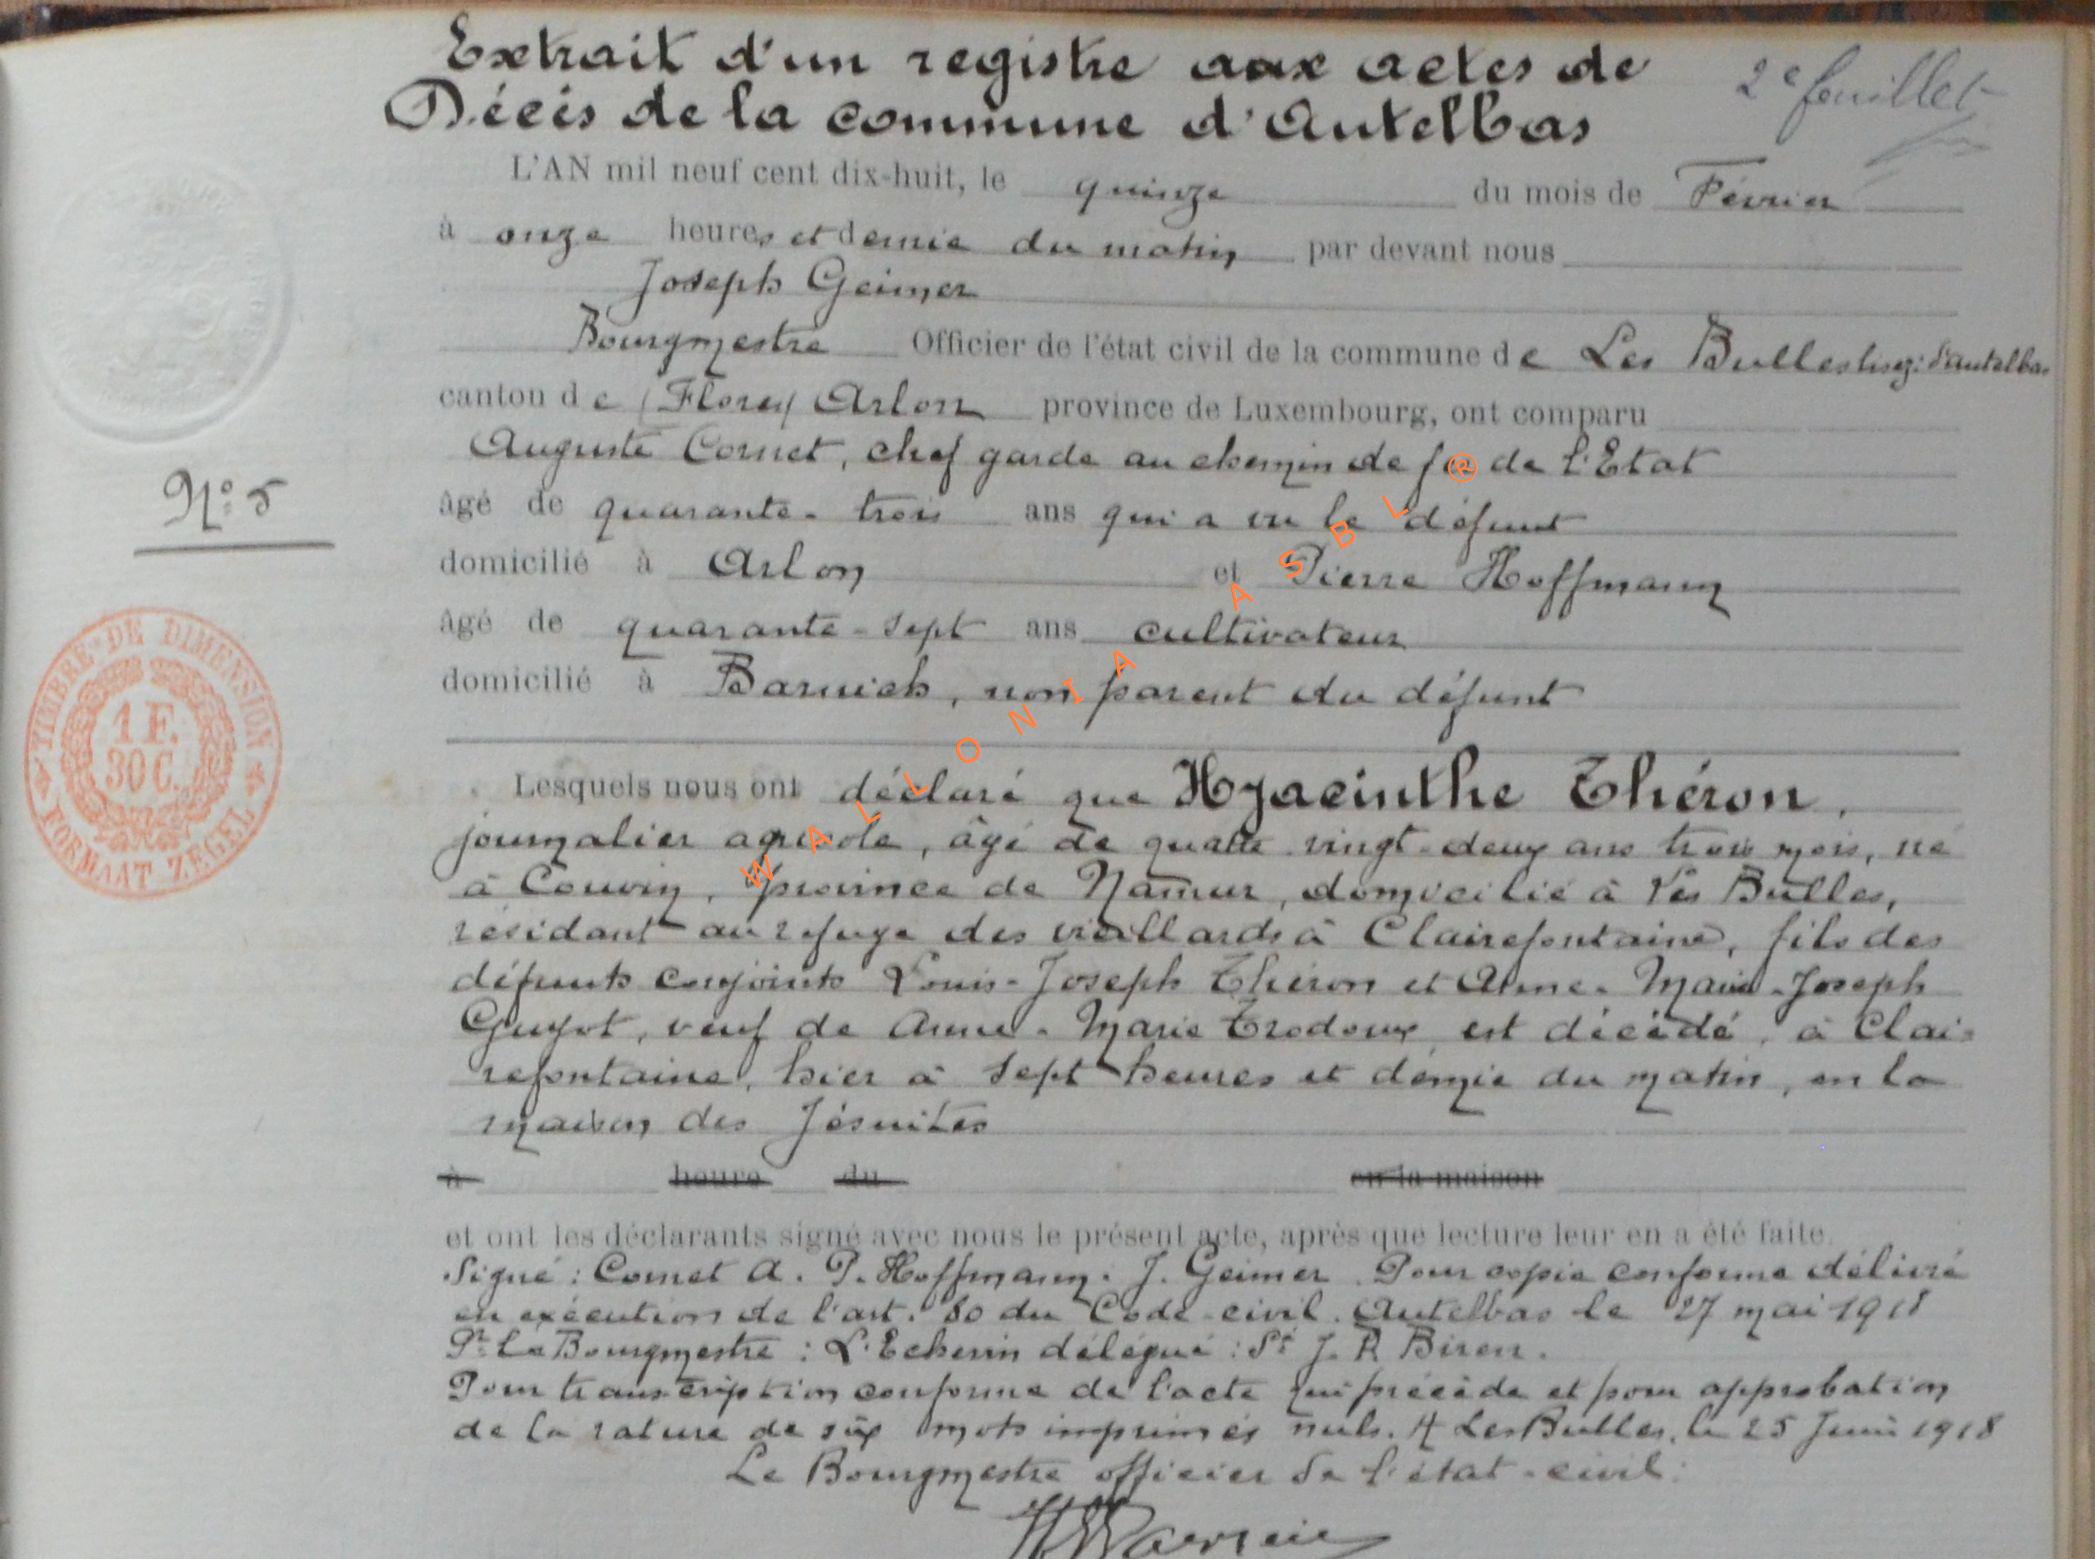 Extrait d'un registre aux actes de
Décès de la commune d'Autelbas
2e feuillet
L'AN mil neuf cent dix-huit, le quinze du mois de Février
à onze heures et demie du matin par devant nous
Joseph Geimer
Bourgmestre Officier de l'état civil de la commune de Les Bulles lisez: d'autelbas
canton de (Florenv) Arlon province de Luxembourg, ont comparu
Auguste Cornet, chef garde au chemin de fer de l'Etat
N°: 5
âgé de quarante-trois ans qui a vu le défunt
domicilié à Arlon et Pierre Hoffmann
âgé de quarante-sept ans cultivateur
domicilié à Barnich, non parent du défunt
TIMBRE DE DIMENSION
1 F.
30 C.
FORMAAT ZEGEL
WALLONIA ASBL ®
Lesquels nous ont déclaré que Hyacinthe Théron,
journalier agricole, âgé de quatre-vingt-deux ans trois mois, né
à Couvin, province de Namur, domicilié à Les Bulles,
résidant au refuge des vieillards à Clairefontaine, fils des
défunts conjoints Louis-Joseph Théron et Anne-Marie-Joseph
Guyot, veuf de Anne-Marie Trodoux est décédé, à Clai-
refontaine, hier à sept heures et demie du matin, en la
maison des Jésuites
à heure du en la maison
et ont les déclarants signé avec nous le présent acte, après que lecture leur en a été faite.
Signé: Cornet A. P. Hoffmann. J. Geimer. Pour copie conforme délivré
en exécution de l'art. 80 du Code civil. Autelbas le 27 mai 1918
Pr Le Bourgmestre: L'Echevin délégué: Sé J. P. Biren.
Pour transcription conforme de l'acte qui précède et pour approbation
de la rature de six mots imprimés nuls. A Les Bulles, le 25 Juin 1918
Le Bourgmestre officier de l'état-civil: